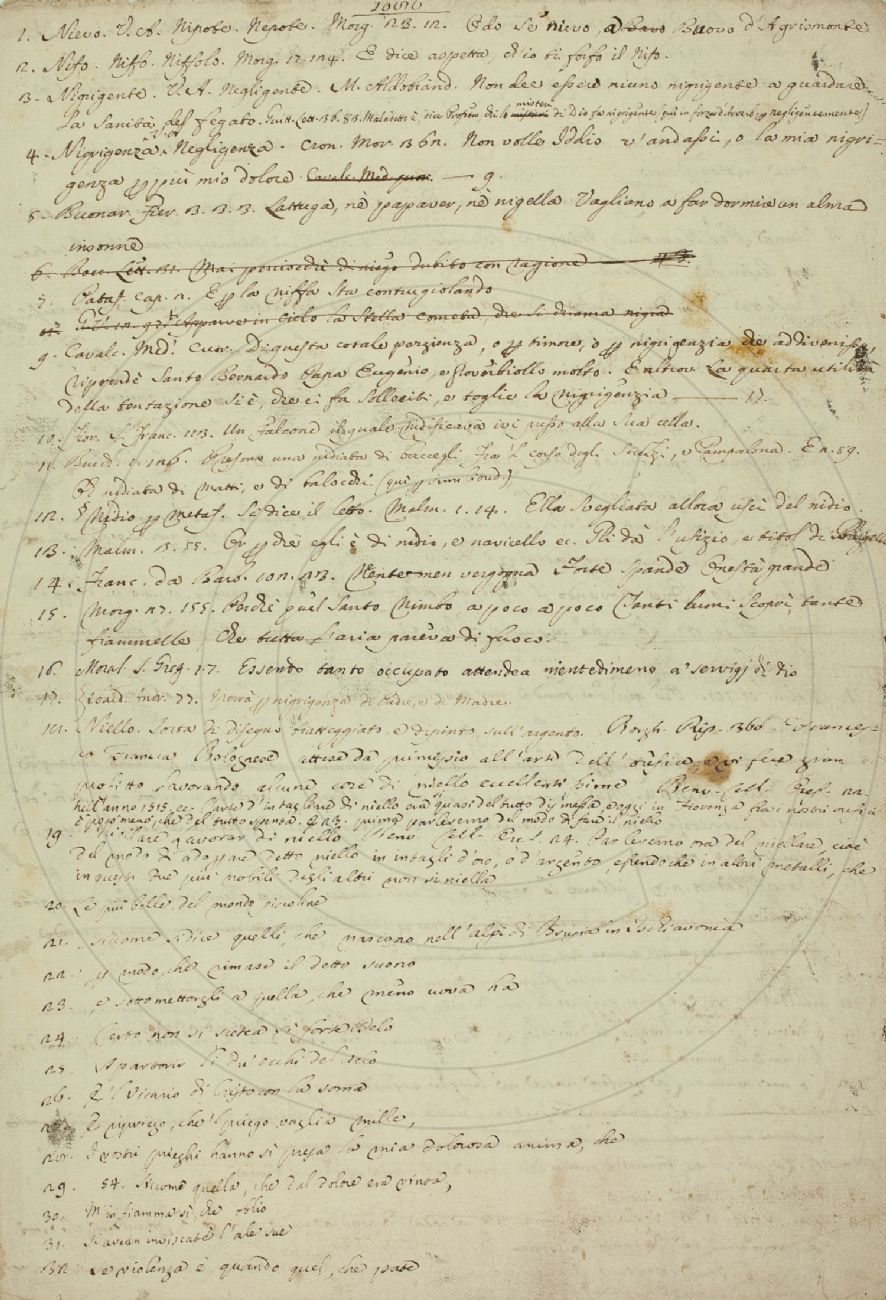 1. Nievo. V. A. Nipote. Nepote. Morg. 23. 12. Edo se' nievo, a Buovo d'Agrismonte
2. Nifo. Niffo. Niffolo. Morg. 17. 124. E dice aspetta, ch'io ti forfo il Nifo.
3. Nigrigente. V. A. Negligente. M. Aldobrand. Non dee essere niuno nigrigente a guardare
la Sanità del fegato. Guitt. Lett.
4. Nigrigenza. V. A. Negligenza. Cron. Mor. Non volle Iddio v'andassi, o la mia nigri-
genza p più mio dolore. — 9.
5. Buonar. Fier. 3. 3. 3. Lattuga, nè papaver, nè nigella Vagliano a far dormire un alma
insonne
6. Mai dubito con ragione
7. Pataf. Cap. E p la niffa sta contrugiolando
Apparve in Cielo la Stella Cometa, che si chiama nigra
9. Cavalc. Med. Cuor. Di questa cotale pazienza, o p timore, o p nigrigenzia che addivenisse,
riprende Santo Bernardo Papa Eugenio, e molto. E altrove La quarta utilità
della tentazione si è, che ci fa solleciti, e toglie la nigrigenzia — 17.
10. Fior. S. Franc. 113. Un falcone il quale nidificava ivi presso alla sua cella.
11. una nidiata di Fra 'l corso degli e Pampalona. E n. 59.
nidiata di matti, e di balocchi (qui p simil.)
12. Nidio p metaf. Si dice il letto. Malm. 1. 14. Ella svegliata allora uscì del nidio.
13. Malm. 3. 55. Or p chè egli è di nidio, e navicello ec. Gli dà l'ufizio, e titol di
14. Franc. da Barb. Niente men vergogna Forte spande Onestà grande
15. Morg. 27. 155. Perchè quel Santo Nimbo a poco a poco Tanti lumi scoprì, tante
fiammelle, Che tutta l'aria pareva di fuoco.
16. Moral. S. Greg. 1. 7. Essendo tanto occupato attendea nientedimeno a' servigj di Dio
17. Morà p nigrigenza di Padre, e di Madre.
18. Niello. Sorta di disegno tratteggiato, e dipinto sull'argento. Borgh. Rip. Frances-
co Francia Bolognese attese da principio all'arte dell'orefice, e vi fece gran
profitto lavorando alcune cose di niello eccellentissime Benv. Cell. Oref.
nell'anno 1515. ec. l'arte d'intagliare di niello era quasi del tutto dismessa, e oggi in Fiorenza fra i nostri orefici
è poco meno, che del tutto spenta. prima parleremo del modo di fare il niello
19. Niellare Lavorar di niello Benv. Cell. Oref. 24. Parleremo ora del niellare, cioè
del modo di adoprare detto niello in intagli d'oro, o d'argento, essendochè in altri metalli, che
in questi due più nobili degli altri non si niella
20. Le più belle del mondo piccoline
21. siccome si dice quelli, che nascono nell'alpi di in Ischiavonia
22. p modo, che rimase il detto suono
23. e sottomettergli a quella, che meno uova ha
24. Certo non si scotea sì forte Delo
25. A partorir li du' occhi del Cielo
26. E 'l Vicario di Cristo con la soma
27. E ripriego, che 'l priego vaglia mille,
28. I vostri prieghi hanno sì presa la mia dolorosa anima, che
29. 54. Siccome quella, che dal dolore era vinta,
30. M'infiamma sì, che oblio
31. S'avean inviscate l'ale sue
32. Se violenza è quando quel, che pate